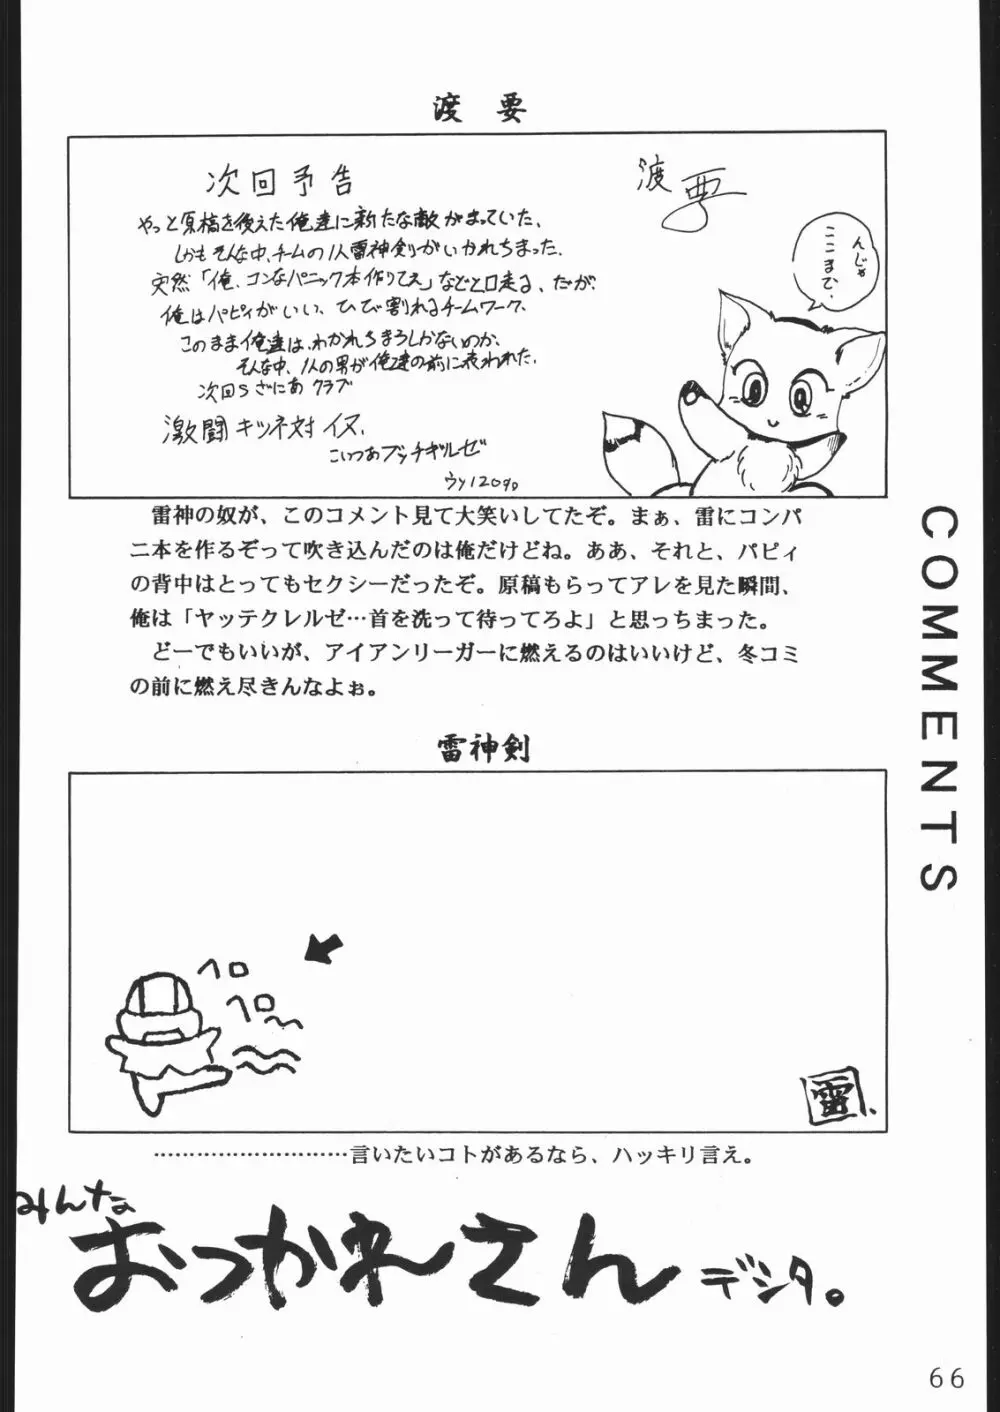 渡 要
次回予告
渡 要
やっと原稿を終えた俺達に新たな敵がまっていた、
しかもそんな中、チームの1人雷神剣がいかれちまった。
突然「俺、コンなパニック本作りてえ」などと口走る、だが、
俺はパピィがいい、ひび割れるチームワーク、
このまま俺達は、わかれちまうしかないのか、
そんな中、1人の男が俺達の前に表われた。
次回Sざにあ クラブ
激闘 キツネ対 イヌ、
こいつあブッチギルゼ
んじゃ
ここまで、
雷神の奴が、このコメント見て大笑いしてたぞ。まぁ、雷にコンパ
ニ本を作るぞって吹き込んだのは俺だけどね。ああ、それと、パピィ
の背中はとってもセクシーだったぞ。原稿もらってアレを見た瞬間、
俺は「ヤッテクレルゼ…首を洗って待ってろよ」と思っちまった。
どーでもいいが、アイアンリーガーに燃えるのはいいけど、冬コミ
の前に燃え尽きんなよぉ。
COMMENTS
雷神剣
ヘロ
ヘロ
雷
………………………言いたいコトがあるなら、ハッキリ言え。
みんな
おつかれさん デシタ。
66